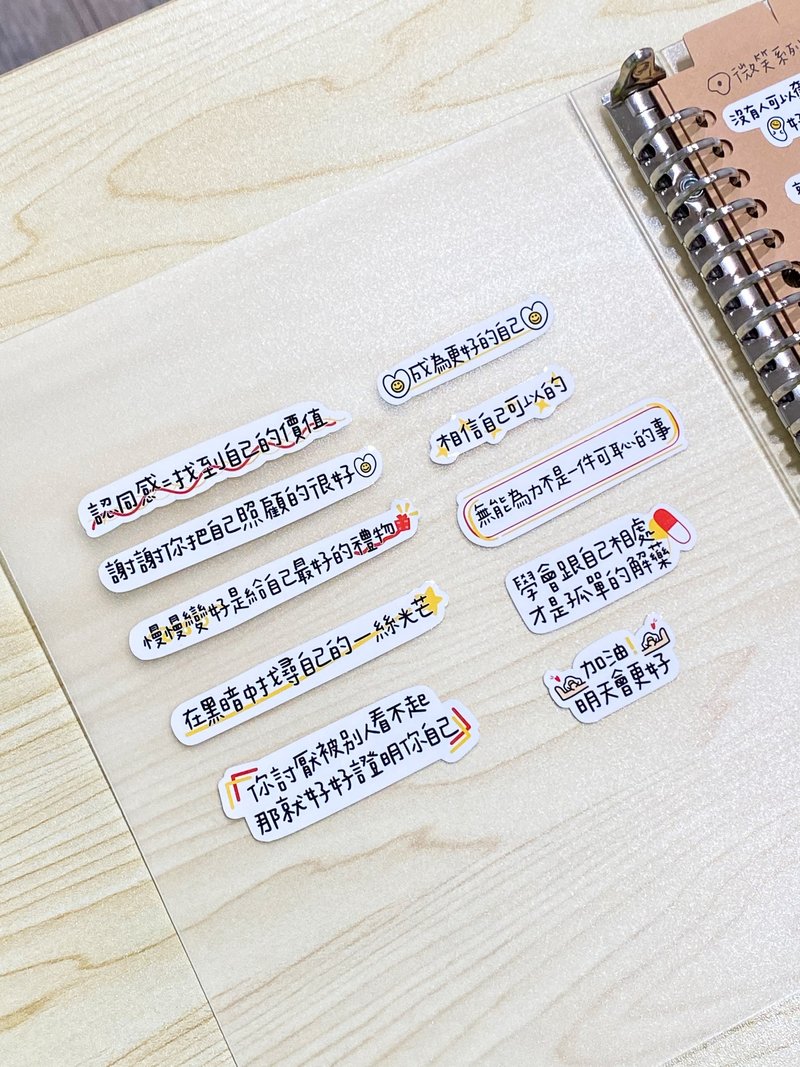 微笑系列
沒有人可以
成為更好的自己
相信自己可以的
無能為力不是一件可恥的事
學會跟自己相處
才是孤單的解藥
加油!
明天會更好
認同感=找到自己的價值
謝謝你把自己照顧的很好
慢慢變好是給自己最好的禮物
在黑暗中找尋自己的一絲光芒
「你討厭被別人看不起
那就好好證明你自己」